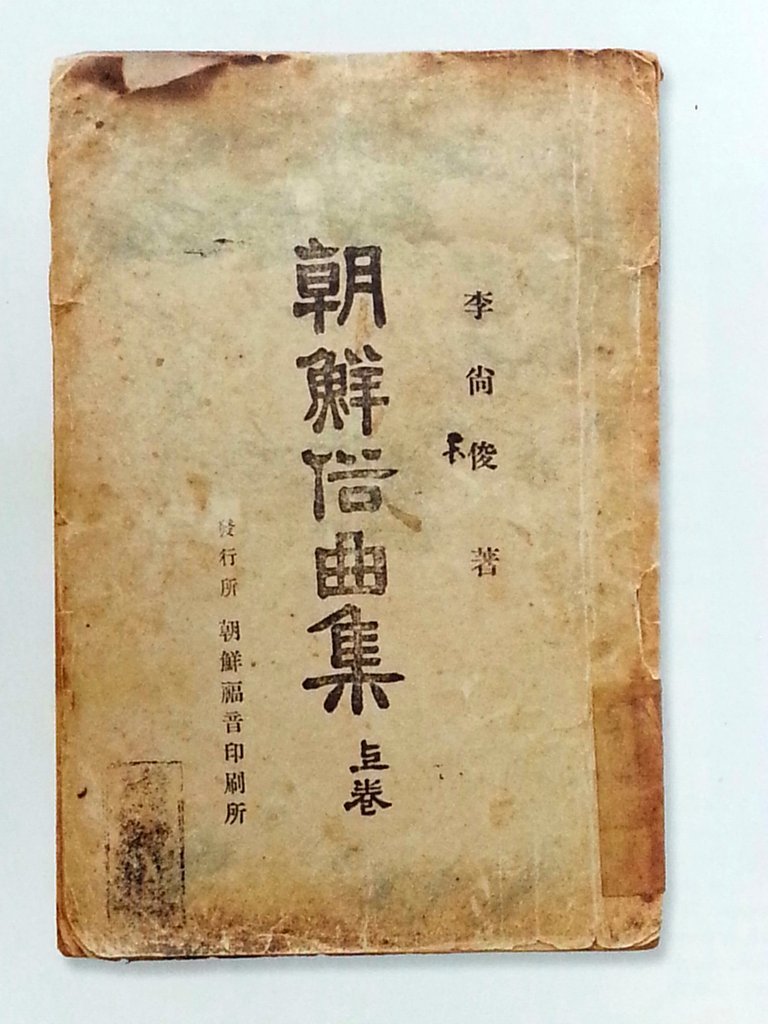 李尙俊著
朝鮮俗曲集 上卷
發行所 朝鮮福音印刷所